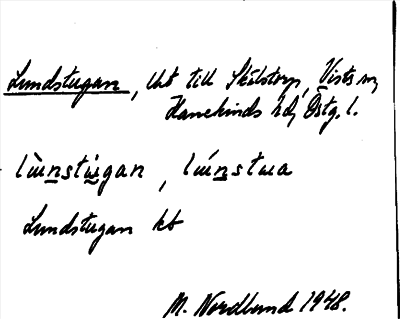 Lundstugan, lht till Skälstorp, Vists sn,
Hanekinds hd, Östg. l.
lɯ̀n̲stɯ̲̀gan, lɯ́n̲stɯa
Lundstugan kb
M. Nordlund 1948.